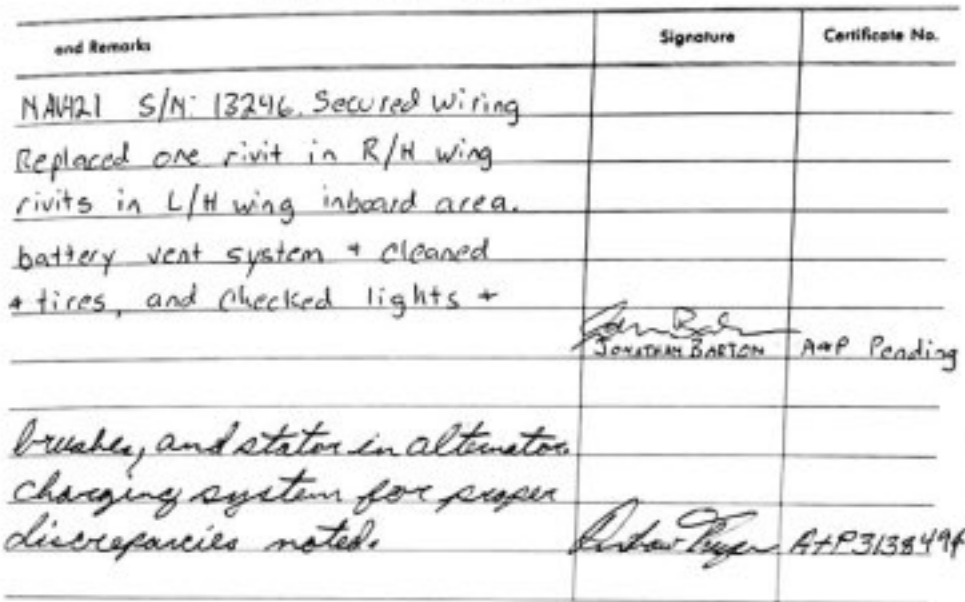 and Remarks Signature Certificate No.
NAV121 S/N: 13246. Secured wiring
Replaced one rivit in R/H wing
rivits in L/H wing inboard area.
battery vent system + cleaned
+ tires, and checked lights +
JONATHAN BARTON A+P Pending
brushes, and stator in alternator.
charging system for proper
discrepancies noted. A+P3138491